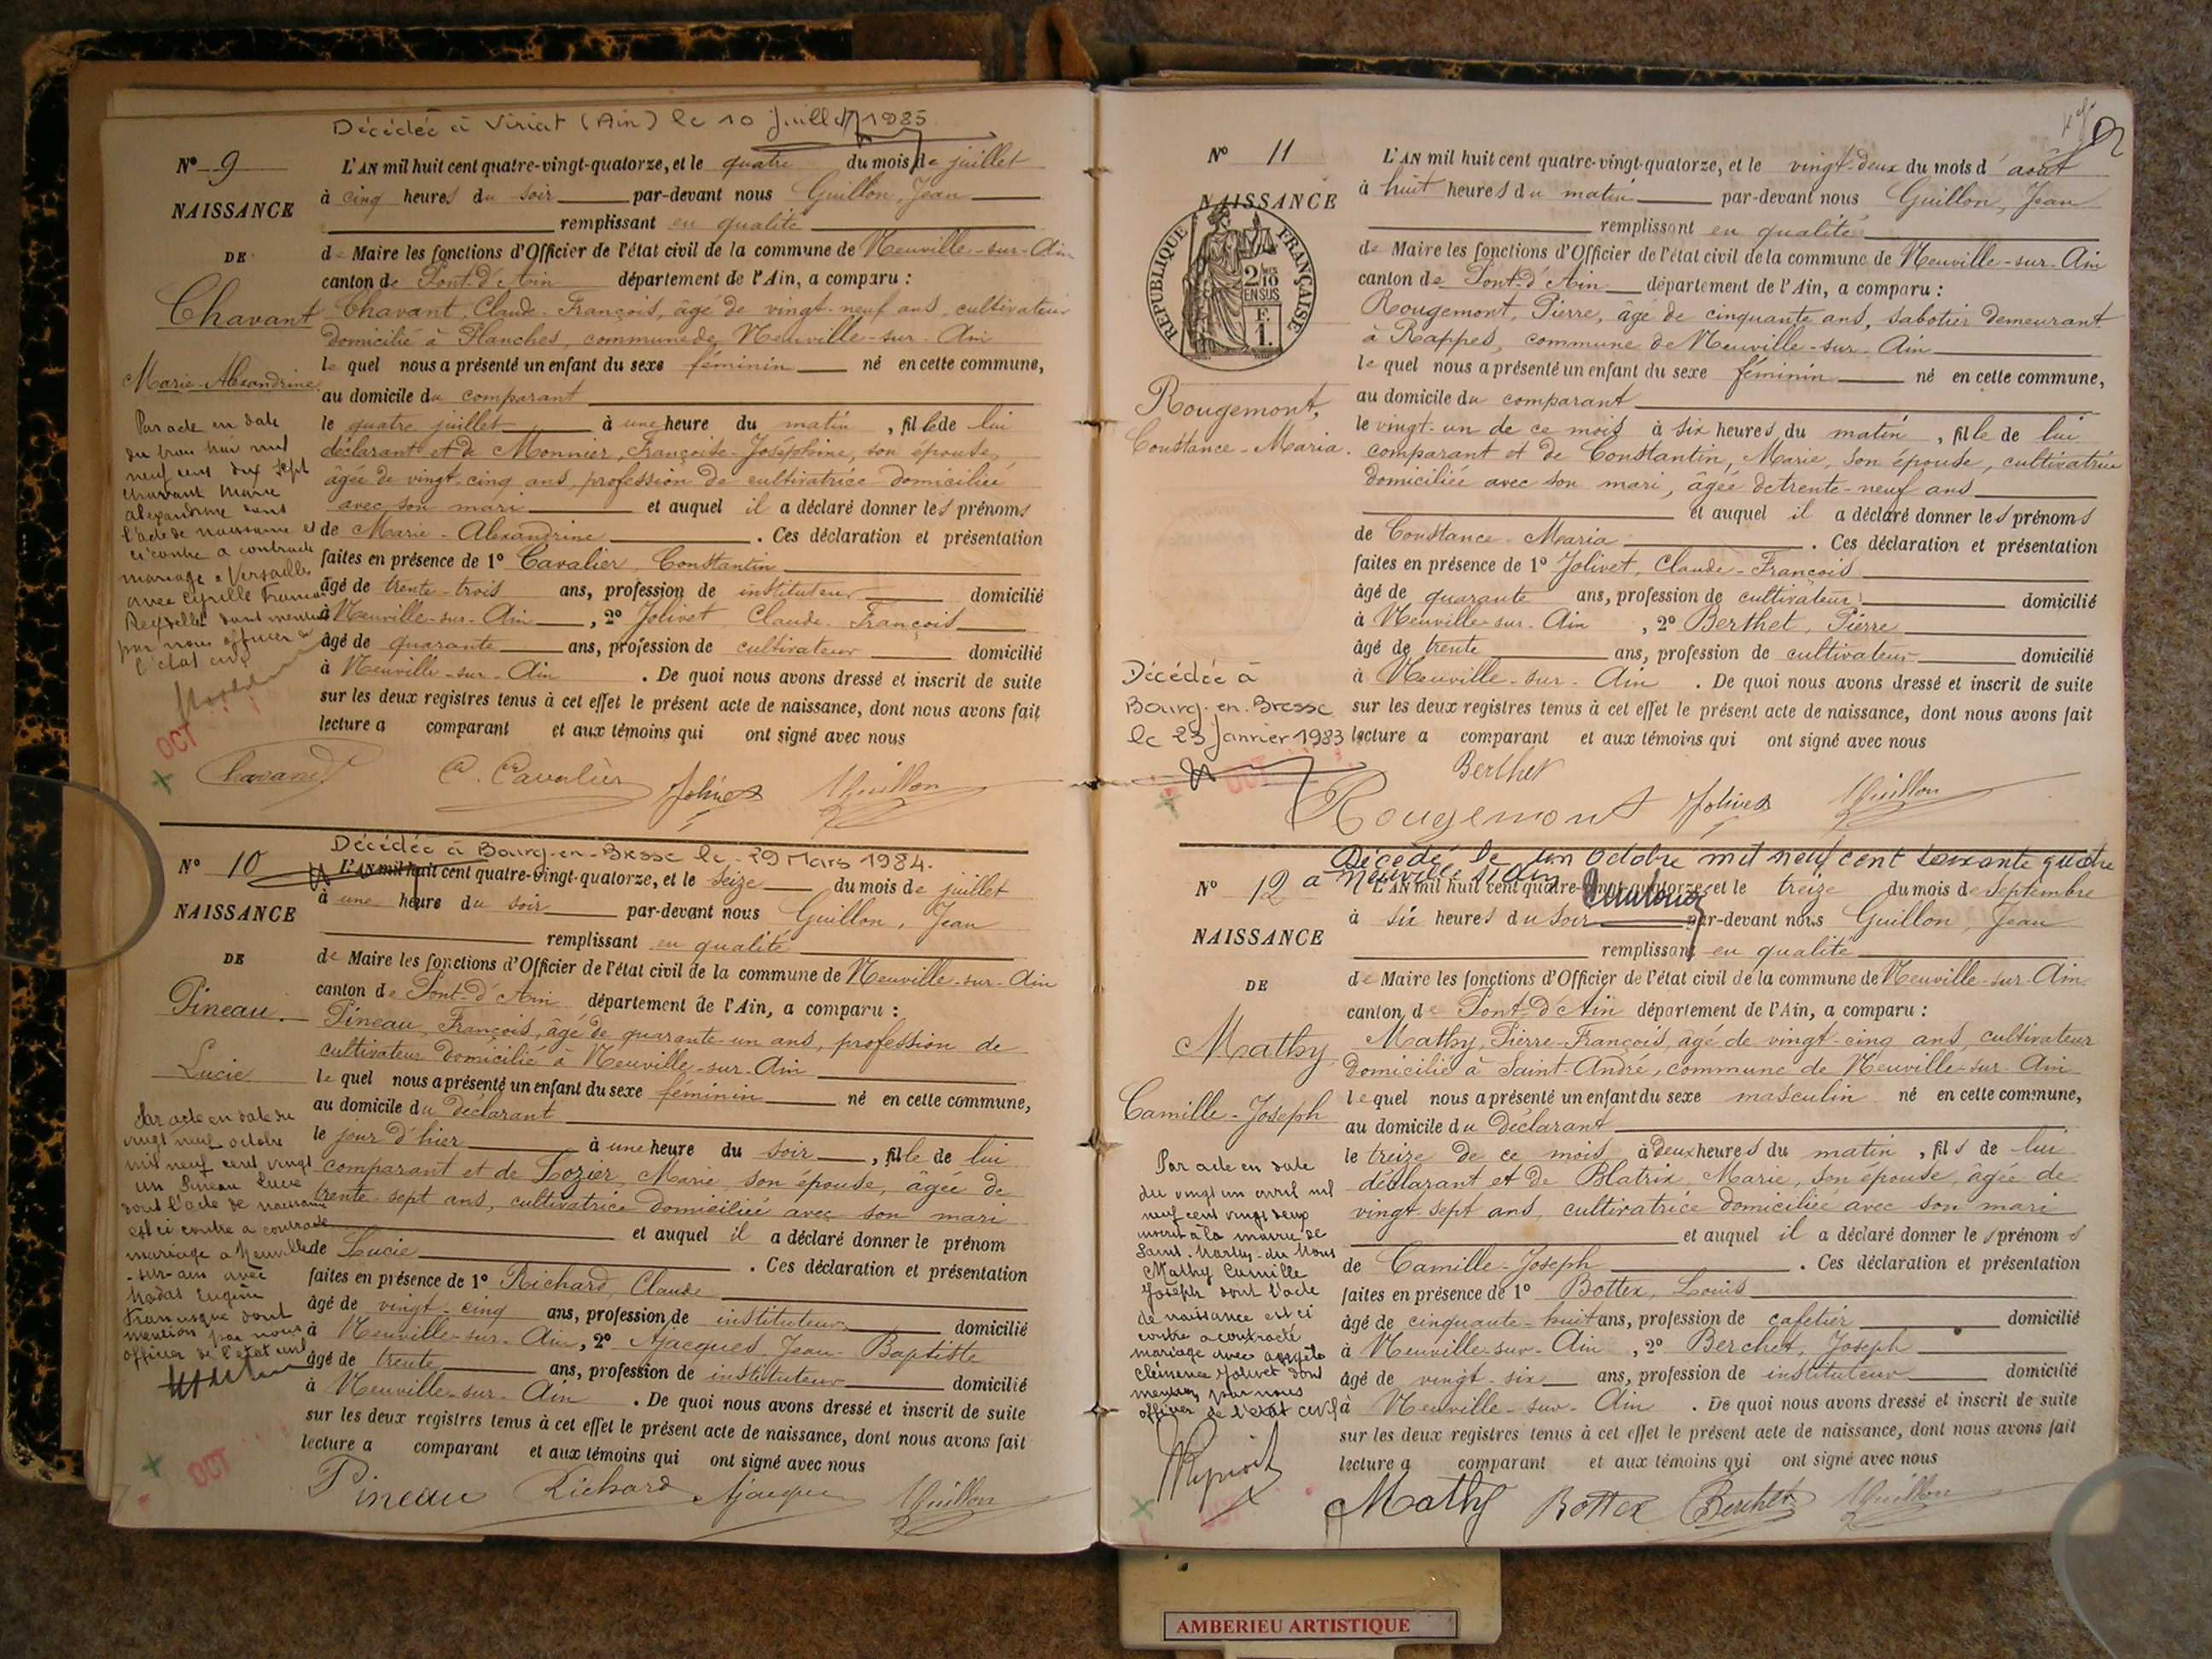 Décédée à Viriat (Ain) le 10 juillet 1985
N° 9
NAISSANCE
DE
Chavant
Marie-Alexandrine
L'AN mil huit cent quatre-vingt-quatorze, et le quatre du mois de juillet
à cinq heures du soir par-devant nous Guillon, Jean
remplissant en qualité
de Maire les fonctions d'Officier de l'état civil de la commune de Neuville-sur-Ain
canton de Pont-d'Ain département de l'Ain, a comparu :
Chavant, Claude-François, âgé de vingt-neuf ans, cultivateur
domicilié à Planches, commune de Neuville-sur-Ain
le quel nous a présenté un enfant du sexe féminin né en cette commune,
au domicile du comparant
le quatre juillet à une heure du matin, fille de lui
déclarant et de Monnier, Françoise-Joséphine, son épouse,
âgée de vingt-cinq ans, profession de cultivatrice domiciliée
avec son mari et auquel il a déclaré donner les prénoms
de Marie-Alexandrine. Ces déclaration et présentation
faites en présence de 1° Cavalier, Constantin
âgé de trente-trois ans, profession de instituteur domicilié
à Neuville-sur-Ain, 2° Jolivet, Claude-François
âgé de quarante ans, profession de cultivateur domicilié
à Neuville-sur-Ain. De quoi nous avons dressé et inscrit de suite
sur les deux registres tenus à cet effet le présent acte de naissance, dont nous avons fait
lecture a comparant et aux témoins qui ont signé avec nous
Par acte en date
du trois mai mil
neuf cent dix sept
Chavant Marie
Alexandrine dont
l'acte de naissance est
ci contre a contracté
mariage à Versailles
avec Cyrille
dont mention
par nous officier de
l'état civil
OCT
Chavant C. Cavalier Jolivet Guillon
Décédée à Bourg-en-Bresse le 29 Mars 1984.
N° 10
NAISSANCE
DE
Pineau
Lucie
L'AN mil huit cent quatre-vingt-quatorze, et le seize du mois de juillet
à une heure du soir par-devant nous Guillon, Jean
remplissant en qualité
de Maire les fonctions d'Officier de l'état civil de la commune de Neuville-sur-Ain
canton de Pont-d'Ain département de l'Ain, a comparu :
Pineau, François, âgé de quarante-un ans, profession de
cultivateur domicilié à Neuville-sur-Ain
le quel nous a présenté un enfant du sexe féminin né en cette commune,
au domicile du déclarant
le jour d'hier à une heure du soir, fille de lui
comparant et de Lozier, Marie, son épouse, âgée de
trente-sept ans, cultivatrice domiciliée avec son mari
et auquel il a déclaré donner le prénom
de Lucie. Ces déclaration et présentation
faites en présence de 1° Richard, Claude
âgé de vingt-cinq ans, profession de instituteur domicilié
à Neuville-sur-Ain, 2° Ajacques, Jean-Baptiste
âgé de trente ans, profession de instituteur domicilié
à Neuville-sur-Ain. De quoi nous avons dressé et inscrit de suite
sur les deux registres tenus à cet effet le présent acte de naissance, dont nous avons fait
lecture a comparant et aux témoins qui ont signé avec nous
Par acte en date du
vingt neuf octobre
mil neuf cent vingt
un Pineau Lucie
dont l'acte de naissance
est ci contre a contracté
mariage à Neuville
-sur-ain avec
Nodat Eugène
Francisque dont
mention par nous
officier de l'état civil
OCT
Pineau Richard Ajacques Guillon
N° 11
NAISSANCE
RÉPUBLIQUE FRANÇAISE
2/10
EN SUS
F.
1.
Rougemont,
Constance-Maria.
L'AN mil huit cent quatre-vingt-quatorze, et le vingt-deux du mois d'août
à huit heures du matin par-devant nous Guillon, Jean
remplissant en qualité
de Maire les fonctions d'Officier de l'état civil de la commune de Neuville-sur-Ain
canton de Pont-d'Ain département de l'Ain, a comparu :
Rougemont, Pierre, âgé de cinquante ans, sabotier demeurant
à Rappes, commune de Neuville-sur-Ain
le quel nous a présenté un enfant du sexe féminin né en cette commune,
au domicile du comparant
le vingt-un de ce mois à six heures du matin, fille de lui
comparant et de Constantin, Marie, son épouse, cultivatrice
domiciliée avec son mari, âgée de trente-neuf ans
et auquel il a déclaré donner les prénoms
de Constance-Maria. Ces déclaration et présentation
faites en présence de 1° Jolivet, Claude-François
âgé de quarante ans, profession de cultivateur domicilié
à Neuville-sur-Ain, 2° Berthet, Pierre
âgé de trente ans, profession de cultivateur domicilié
à Neuville-sur-Ain. De quoi nous avons dressé et inscrit de suite
sur les deux registres tenus à cet effet le présent acte de naissance, dont nous avons fait
lecture a comparant et aux témoins qui ont signé avec nous
Décédée à
Bourg-en-Bresse
le 23 Janvier 1983
OCT
Berthet
Rougemont Jolivet Guillon
Décédé le un Octobre mil neuf cent soixante quatre
a Neuville s/ Ain
N° 12
NAISSANCE
DE
Mathy
Camille-Joseph
L'AN mil huit cent quatre-vingt-quatorze, et le treize du mois de septembre
à six heures du soir par-devant nous Guillon, Jean
remplissant en qualité
de Maire les fonctions d'Officier de l'état civil de la commune de Neuville-sur-Ain
canton de Pont-d'Ain département de l'Ain, a comparu :
Mathy, Pierre-François, âgé de vingt-cinq ans, cultivateur
domicilié à Saint-André, commune de Neuville-sur-Ain
le quel nous a présenté un enfant du sexe masculin né en cette commune,
au domicile du déclarant
le treize de ce mois à deux heures du matin, fils de lui
déclarant et de Blatrix, Marie, son épouse, âgée de
vingt-sept ans, cultivatrice domiciliée avec son mari
et auquel il a déclaré donner les prénoms
de Camille-Joseph. Ces déclaration et présentation
faites en présence de 1° Bottex, Louis
âgé de cinquante-huit ans, profession de cafetier domicilié
à Neuville-sur-Ain, 2° Berchet, Joseph
âgé de vingt-six ans, profession de instituteur domicilié
à Neuville-sur-Ain. De quoi nous avons dressé et inscrit de suite
sur les deux registres tenus à cet effet le présent acte de naissance, dont nous avons fait
lecture a comparant et aux témoins qui ont signé avec nous
Par acte en date
du vingt un avril mil
neuf cent vingt deux
inscrit à la mairie de
Saint-Martin-du-Mont
Mathy Camille
Joseph dont l'acte
de naissance est ci
contre a contracté
mariage avec
Clémence Jolivet dont
mention par nous
officier de l'état civil
Mathy Bottex Berchet Guillon
AMBERIEU ARTISTIQUE